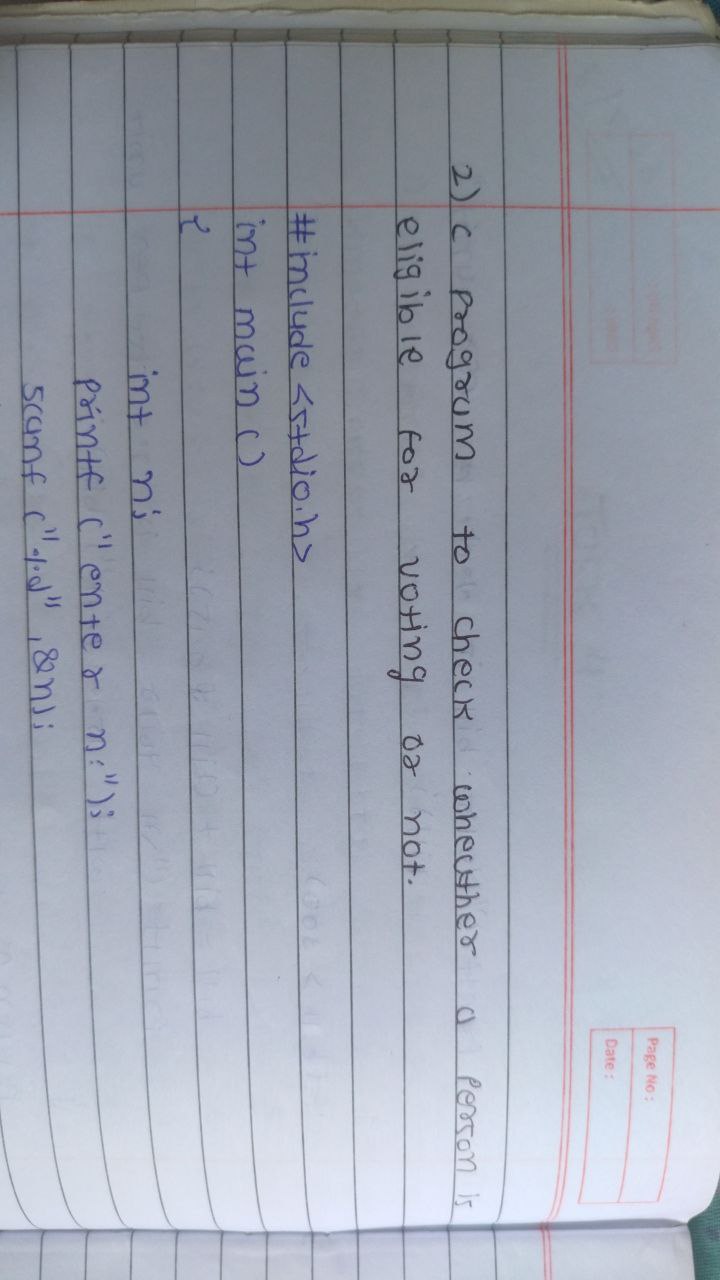 Page No :
Date :
2) c program to check wheather a person is
eligible for voting or not.
#include <stdio.h>
int main ()
{
int n;
printf ("enter n:");
scanf ("%d" ,&n);